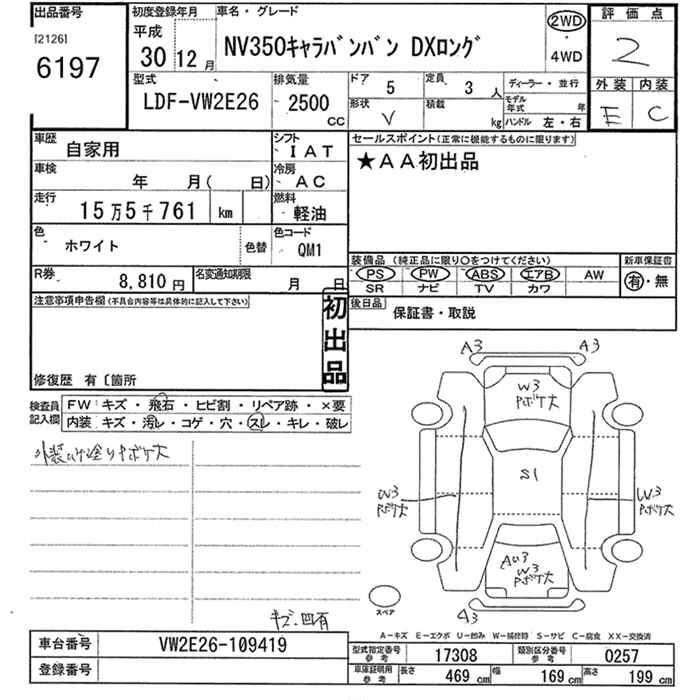 出品番号
[2126]
6197
初度登録年月
平成
30 12 月
車名・グレード
NV350キャラバンバン DXロング
2WD
・
4WD
評価点
2
外装 内装
E C
型式
LDF-VW2E26
排気量
2500
CC
ドア 5
定員 3 人
ディーラー・並行
形状 V
積載 kg
モデル年式 年
ハンドル 左・右
車歴 自家用
シフト IAT
車検 年 月( 日)
冷房 AC
走行 15万5千761 km
燃料 軽油
色 ホワイト
色替
色コード QM1
R券 8,810円
名変通知期限 月 日
セールスポイント(正常に機能するものに限ります)
★AA初出品
装備品(純正品に限り○をつけてください)
PS PW ABS エアB AW
SR ナビ TV カワ
新車保証書
有・無
後日品
保証書・取説
注意事項申告欄(不具合内容等は具体的に記入して下さい)
初出品
修復歴 有〔箇所
検査員記入欄
FW:キズ・飛石・ヒビ割・リペア跡・×要
内装:キズ・汚レ・コゲ・穴・スレ・キレ・破レ
キズ・凹有
A3 A3
W3
ボケ大
S1
W3
ボケ大
W3
ボケ大
AU3
W3
ボケ大
A3
スペア
A-キズ E-エクボ U-凹み W-補修跡 S-サビ C-腐食 XX-交換済
車台番号 VW2E26-109419
登録番号
型式指定番号 参考 17308
類別区分番号 参考 0257
車庫証明用 参考 長さ 469 cm 幅 169 cm 高さ 199 cm